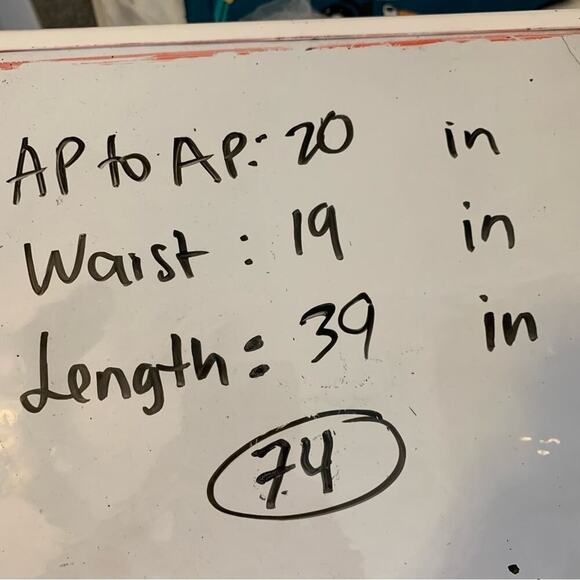 AP to AP: 20 in
Waist : 19 in
Length: 39 in
74